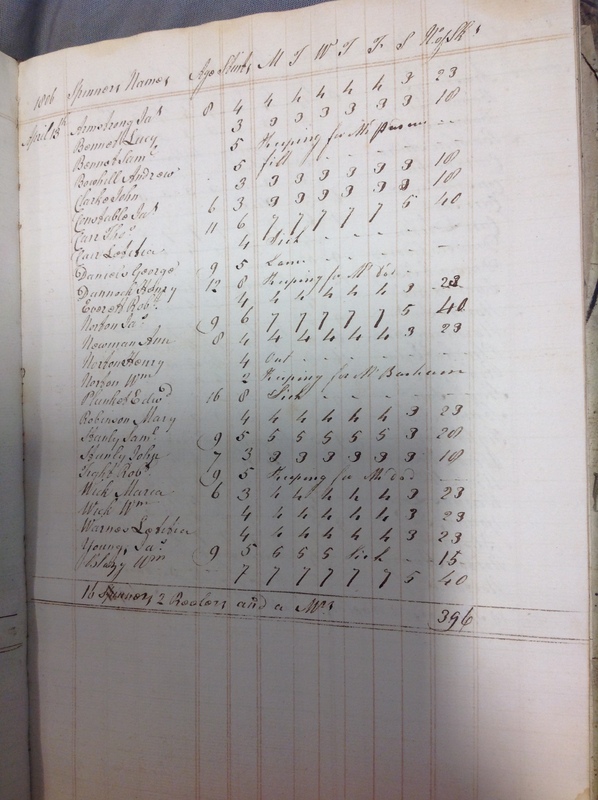 1806 Spinners Names Age Stint M T W T F S No of Sks
April 13th Armstrong Jas 8 4 4 4 4 4 4 3 23
Bennett Lucy 3 3 3 3 3 3 3 18
Bennet Saml 5 Keeping for Mr
Bowhill Andrew 5 fill
Clarke John 3 3 3 3 3 3 3 18
Constable Jas 6 3 3 3 3 3 3 3 18
Carr Thos 11 6 7 7 7 7 7 5 40
Carr Letitia 4 Sick
Daniels George 9 5 Lame
Dunnock Henry 12 8 Keeping for Mr
Everett Robt 4 4 4 4 4 4 3 23
Norton Jas 9 6 7 7 7 7 7 5 40
Newman Ann 8 4 4 4 4 4 4 3 23
Norton Henry 4 Out
Norton Wm 2 Keeping for Mr Basham
Plunket Edwd 16 8 Sick
Robinson Mary 4 4 4 4 4 4 3 23
Stanly Saml 9 5 5 5 5 5 5 3 28
Stanly John 7 3 3 3 3 3 3 3 18
Tight Robt 9 5 Keeping for Mr
Wick Maria 6 3 4 4 4 4 4 3 23
Wick Wm 4 4 4 4 4 4 3 23
Warnes Letitia 4 4 4 4 4 4 3 23
Young Jas 9 5 5 5 5 Sick 15
Wm 7 7 7 7 7 7 5 40
16 Spinners 2 Reelers and a Mrs 396